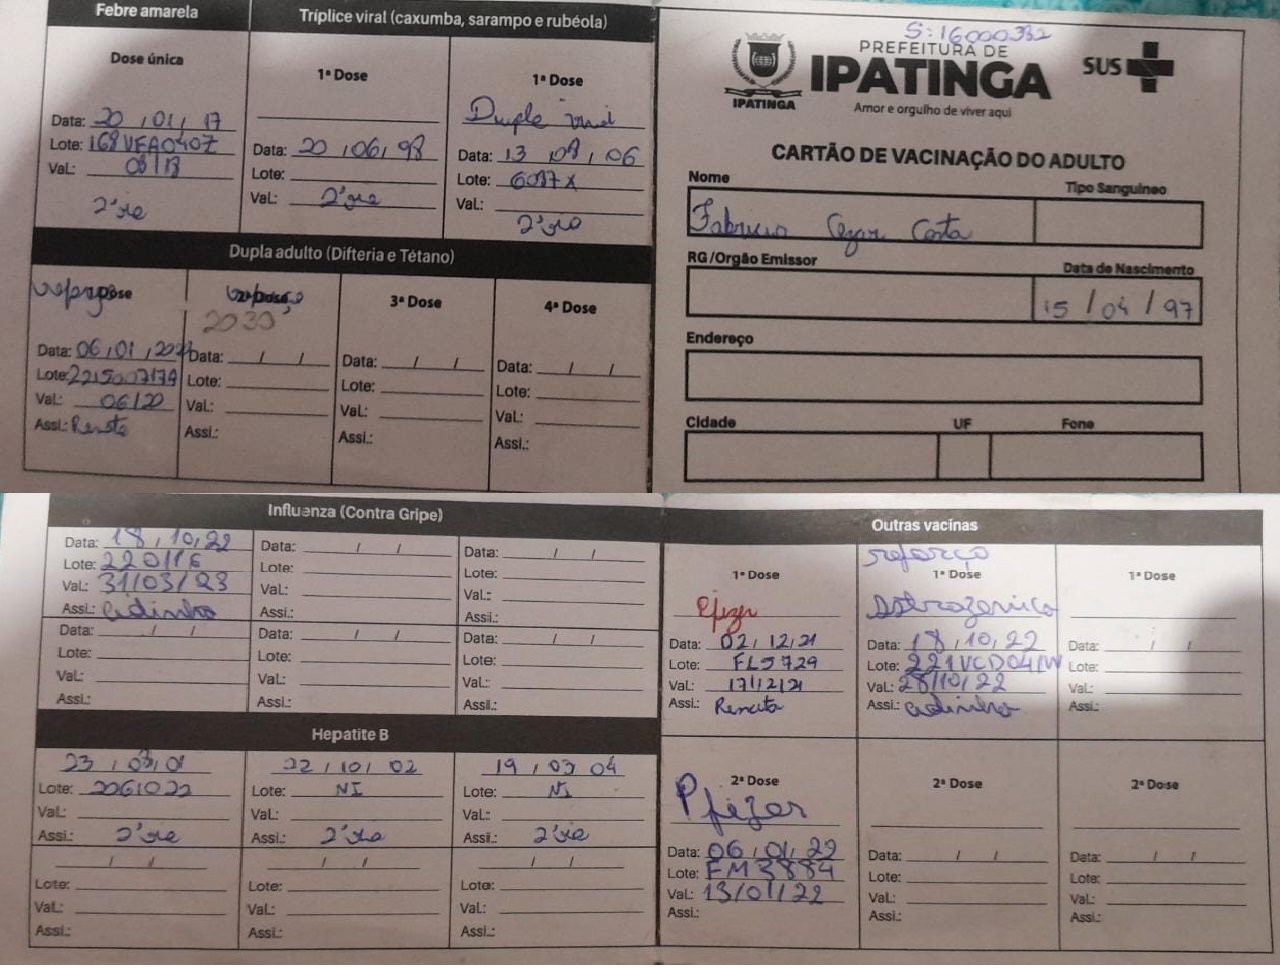 Febre amarela
Dose única
Data: 20/01/17
Lote: 168VFA040Z
Val.:
2ª via
Tríplice viral (caxumba, sarampo e rubéola)
1ª Dose
Data: 20/06/98
Lote:
Val.: 2ª via
1ª Dose
Dupla viral
Data: 13 08/06
Lote:
Val.:
2ª via
Dupla adulto (Difteria e Tétano)
reforço
Dose
Data: 06/01/2022
Lote: 2215007179
Val.: 06/20
Assi.: Renata
reforço
2ª Dose
2030
Data: / /
Lote:
Val.:
Assi.:
3ª Dose
Data: / /
Lote:
Val.:
Assi.:
4ª Dose
Data: / /
Lote:
Val.:
Assi.:
S:16000332
IPATINGA
PREFEITURA DE
IPATINGA
Amor e orgulho de viver aqui
SUS
CARTÃO DE VACINAÇÃO DO ADULTO
Nome
Tipo Sanguíneo
Fabricio Cezar Costa
RG/Orgão Emissor
Data de Nascimento
15/04/97
Endereço
Cidade
UF
Fone
Influenza (Contra Gripe)
Data: 18/10/22
Lote: 220116
Val.: 31/03/23
Assi.: Cidinha
Data: / /
Lote:
Val.:
Assi.:
Data: / /
Lote:
Val.:
Assi.:
Data: / /
Lote:
Val.:
Assi.:
Data: / /
Lote:
Val.:
Assi.:
Data: / /
Lote:
Val.:
Assi.:
Hepatite B
23/03/01
Lote: 2061022
Val.:
Assi.: 2ª via
22/10/02
Lote: NI
Val.:
Assi.: 2ª via
19/03 04
Lote: NI
Val.:
Assi.: 2ª via
/ /
Lote:
Val.:
Assi.:
/ /
Lote:
Val.:
Assi.:
/ /
Lote:
Val.:
Assi.:
Outras vacinas
1ª Dose
Pfizer
Data: 02/12/21
Lote: FL5729
Val.: 17/12/21
Assi.: Renata
reforço
1ª Dose
Astrazenica
Data: 18/10/22
Lote: 221VCD041W
Val.: 28/10/22
Assi.: Cidinha
1ª Dose
Data: / /
Lote:
Val.:
Assi.:
2ª Dose
Pfizer
Data: 06/01/22
Lote: FM3884
Val.: 13/01/22
Assi.:
2ª Dose
Data: / /
Lote:
Val.:
Assi.:
2ª Dose
Data: / /
Lote:
Val.:
Assi.: